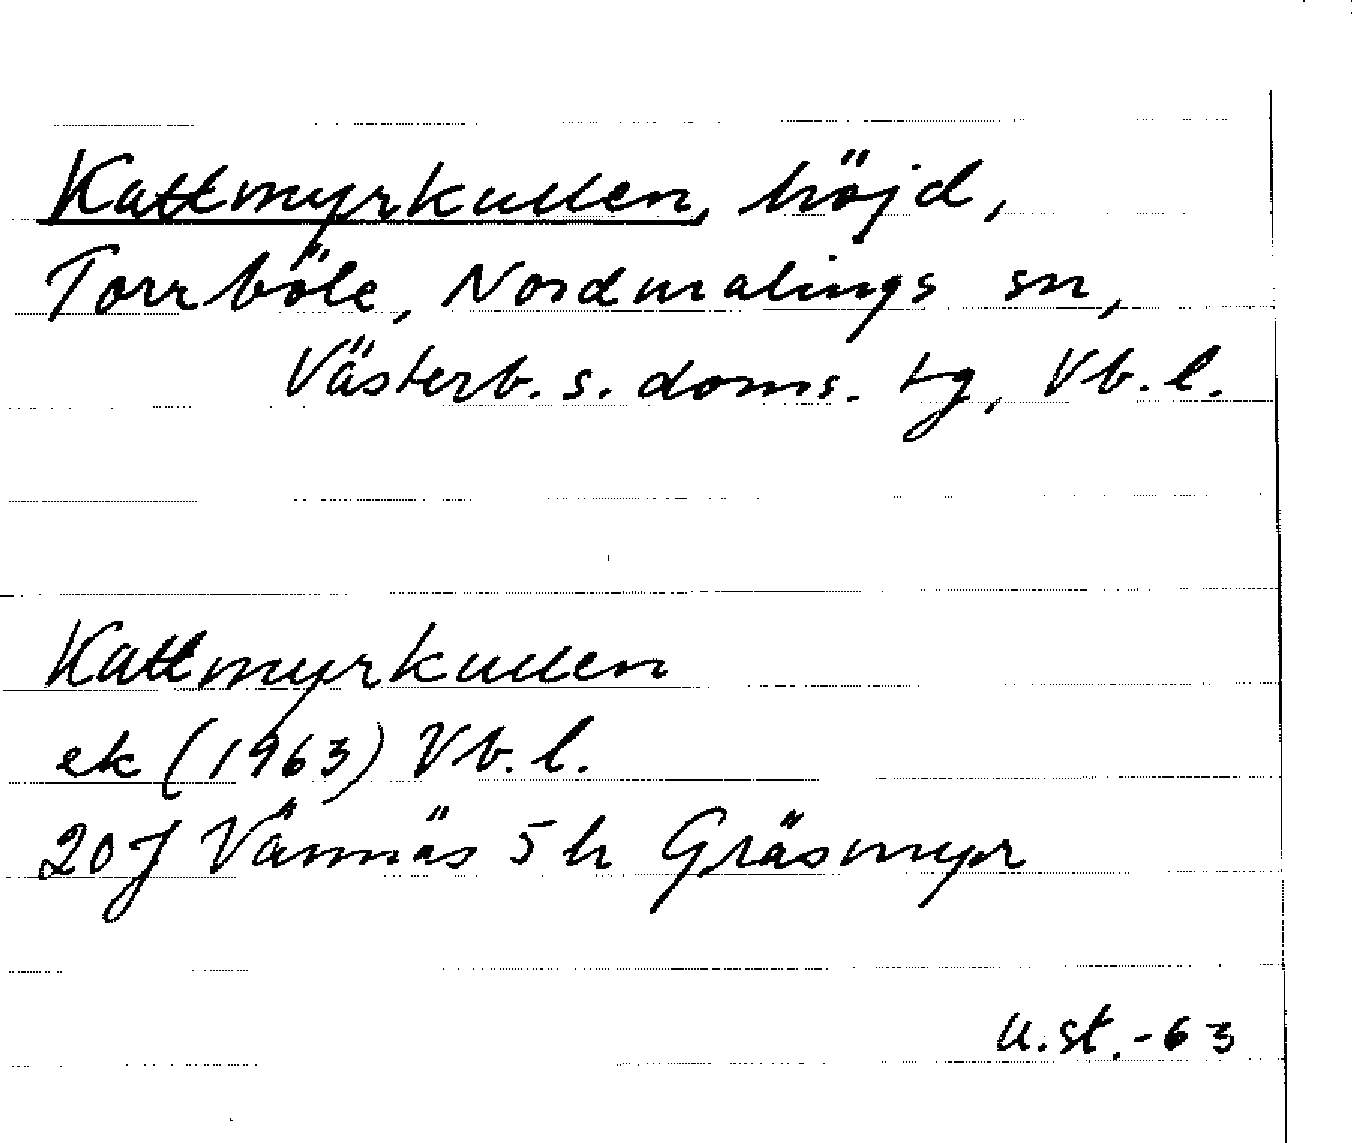 Kattmyrkullen, höjd,
Torrböle, Nordmalings sn,
Västerb. s. doms. tg, Vb. l.
Kattmyrkullen
ek (1963) Vb. l.
20J Vännäs 5h Gräsmyr
U.St.-63